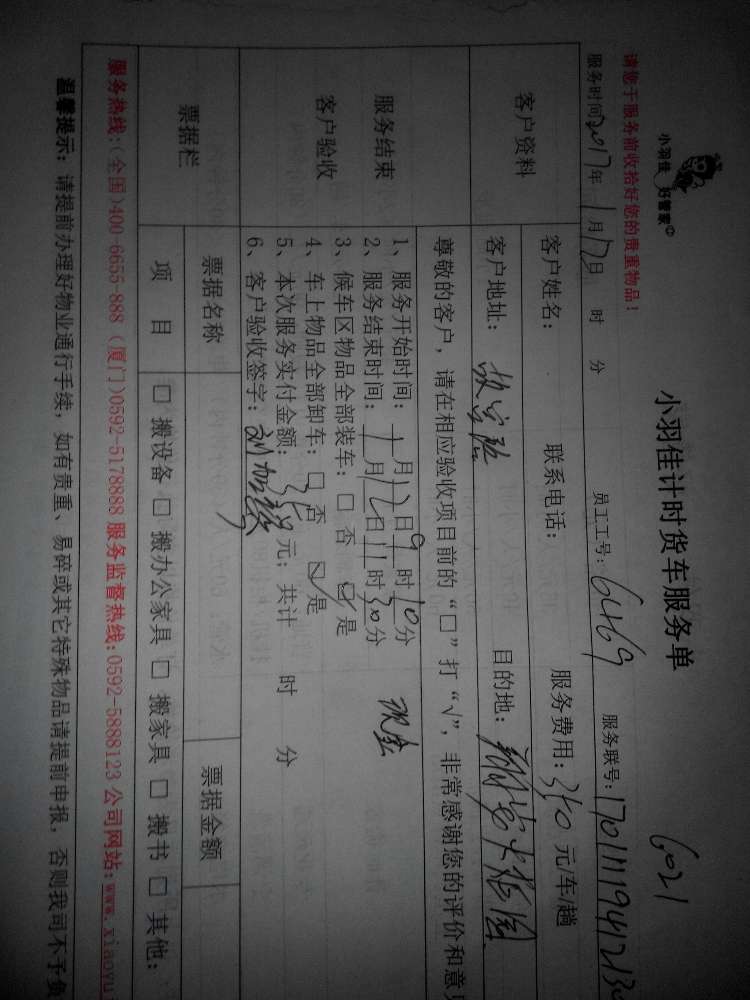 小羽佳 好管家
小羽佳计时货车服务单
6021
请您于服务前收拾好您的贵重物品！
服务时间2017年1月17日 时 分 员工工号：6469 服务联号：1701111941213
客户资料
客户姓名： 联系电话： 服务费用：350元/车/趟
客户地址： 目的地：
尊敬的客户，请在相应验收项目前的“口”打“√”，非常感谢您的评价和意见
服务结束
客户验收
1、服务开始时间： 月 日9时10分
2、服务结束时间： 1月 日11时30分 现金
3、候车区物品全部装车：□ 否 ☑ 是
4、车上物品全部卸车：□ 否 ☑ 是
5、本次服务实付金额：350元；共计 时 分
6、客户验收签字：
票据栏
票据名称 票据金额
项 目 □ 搬设备 □ 搬办公家具 □ 搬家具 □ 搬书 □ 其他：
服务热线：(全国)400-6655-888 (厦门)0592-5178888 服务监督热线：0592-5888123 公司网站：www.xiaoyu
温馨提示：请提前办理好物业通行手续，如有贵重、易碎或其它特殊物品请提前申报，否则我司不予负